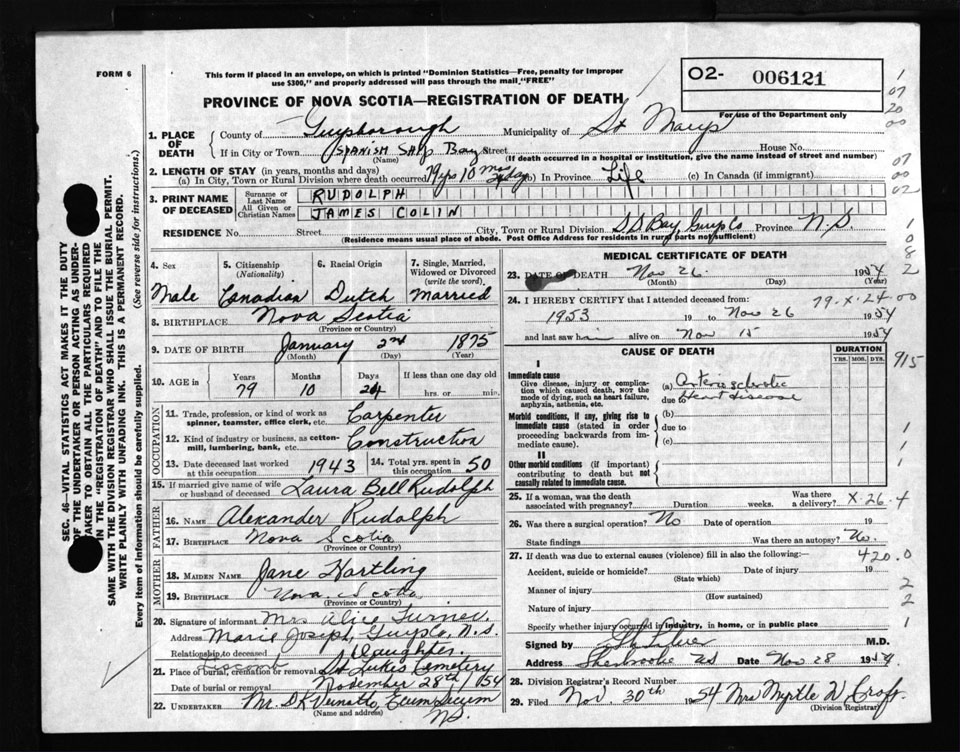 FORM 6
This form if placed in an envelope, on which is printed "Dominion Statistics—Free, penalty for improper
use $300," and properly addressed will pass through the mail "FREE"
O2- 006121
For use of the Department only
PROVINCE OF NOVA SCOTIA—REGISTRATION OF DEATH
1. PLACE OF DEATH
County of Guysborough Municipality of St Marys
If in City or Town SPANISH SHIP Bay Street House No.
(Name) (If death occurred in a hospital or institution, give the name instead of street and number)
2. LENGTH OF STAY (in years, months and days)
(a) In City, Town or Rural Division where death occurred 79yrs 10 mos (b) In Province Life (c) In Canada (if immigrant)
3. PRINT NAME OF DECEASED
Surname or Last Name RUDOLPH
All Given or Christian Names JAMES COLIN
RESIDENCE No. Street City, Town or Rural Division S.S. Bay, Guys Co Province N.S.
(Residence means usual place of abode. Post Office Address for residents in rural parts not sufficient)
4. Sex
Male
5. Citizenship (Nationality)
Canadian
6. Racial Origin
Dutch
7. Single, Married, Widowed or Divorced (write the word)
Married
8. BIRTHPLACE Nova Scotia
(Province or Country)
9. DATE OF BIRTH January 2nd 1875
(Month) (Day) (Year)
10. AGE in Years Months Days If less than one day
79 10 24 hrs. or min.
OCCUPATION
11. Trade, profession, or kind of work as
spinner, teamster, office clerk, etc. Carpenter
12. Kind of industry or business, as cotton-
mill, lumbering, bank, etc. Construction
13. Date deceased last worked at this occupation 1943
14. Total yrs. spent in this occupation 50
15. If married give name of wife
or husband of deceased Laura Bell Rudolph
FATHER
16. NAME Alexander Rudolph
17. BIRTHPLACE Nova Scotia
(Province or Country)
MOTHER
18. MAIDEN NAME Jane Hartling
19. BIRTHPLACE Nova Scotia
(Province or Country)
20. Signature of informant Mrs Alice Turner
Address Marie Joseph, Guys Co, N.S.
Relationship to deceased Daughter.
Liscomb
21. Place of burial, cremation or removal St Lukes Cemetery
Date of burial or removal November 28th/54
22. UNDERTAKER Mr. D K Ecum Secum
(Name and address) N.S.
MEDICAL CERTIFICATE OF DEATH
23. DATE OF DEATH Nov 26. 1954
(Month) (Day) (Year)
24. I HEREBY CERTIFY that I attended deceased from:
1953 19 to Nov 26 1954
and last saw him alive on Nov 15 1954
CAUSE OF DEATH
DURATION
YRS. MOS. DYS.
I
Immediate cause
Give disease, injury or complica-
tion which caused death, NOT the
mode of dying, such as heart failure,
asphyxia, asthenia, etc.
(a) Arterio sclerotic
due to Heart disease
Morbid conditions, if any, giving rise to
immediate cause (stated in order
proceeding backwards from im-
mediate cause).
(b)
due to
(c)
II
Other morbid conditions (if important)
contributing to death but not
causally related to immediate cause.
25. If a woman, was the death
associated with pregnancy? Duration weeks. Was there a delivery?
26. Was there a surgical operation? No Date of operation 19
State findings Was there an autopsy? No.
27. If death was due to external causes (violence) fill in also the following:—
Accident, suicide or homicide? Date of injury 19
(State which)
Manner of injury
(How sustained)
Nature of injury
Specify whether injury occurred in industry, in home, or in public place
Signed by M.D.
Address Sherbrooke NS Date Nov 28 1954
28. Division Registrar's Record Number
29. Filed Nov. 30th 1954 Mrs Myrtle W Croft.
(Division Registrar)
1
07
20
00
07
00
02
1
0
8
2
79.X.24.00
915
1
1
1
X.26.4
420.0
2
2
1
SEC. 46—VITAL STATISTICS ACT MAKES IT THE DUTY
OF THE UNDERTAKER OR PERSON ACTING AS UNDER-
TAKER TO OBTAIN ALL THE PARTICULARS REQUIRED
IN THE "REGISTRATION OF DEATH" AND TO FILE THE
SAME WITH THE DIVISION REGISTRAR WHO SHALL ISSUE THE BURIAL PERMIT.
WRITE PLAINLY WITH UNFADING INK. THIS IS A PERMANENT RECORD.
Every item of information should be carefully supplied. (See reverse side for instructions.)